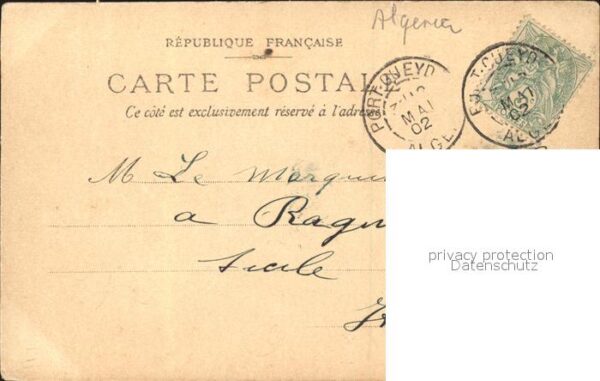 Algeria
RÉPUBLIQUE FRANÇAISE
CARTE POSTAL
Ce côté est exclusivement réservé à l'adres
PORT-GUEYD
MAI
02
ALGE
T-GUEYD
MAI
02
ALG
M Le Marqui
a Ragu
Sicile
privacy protection
Datenschutz